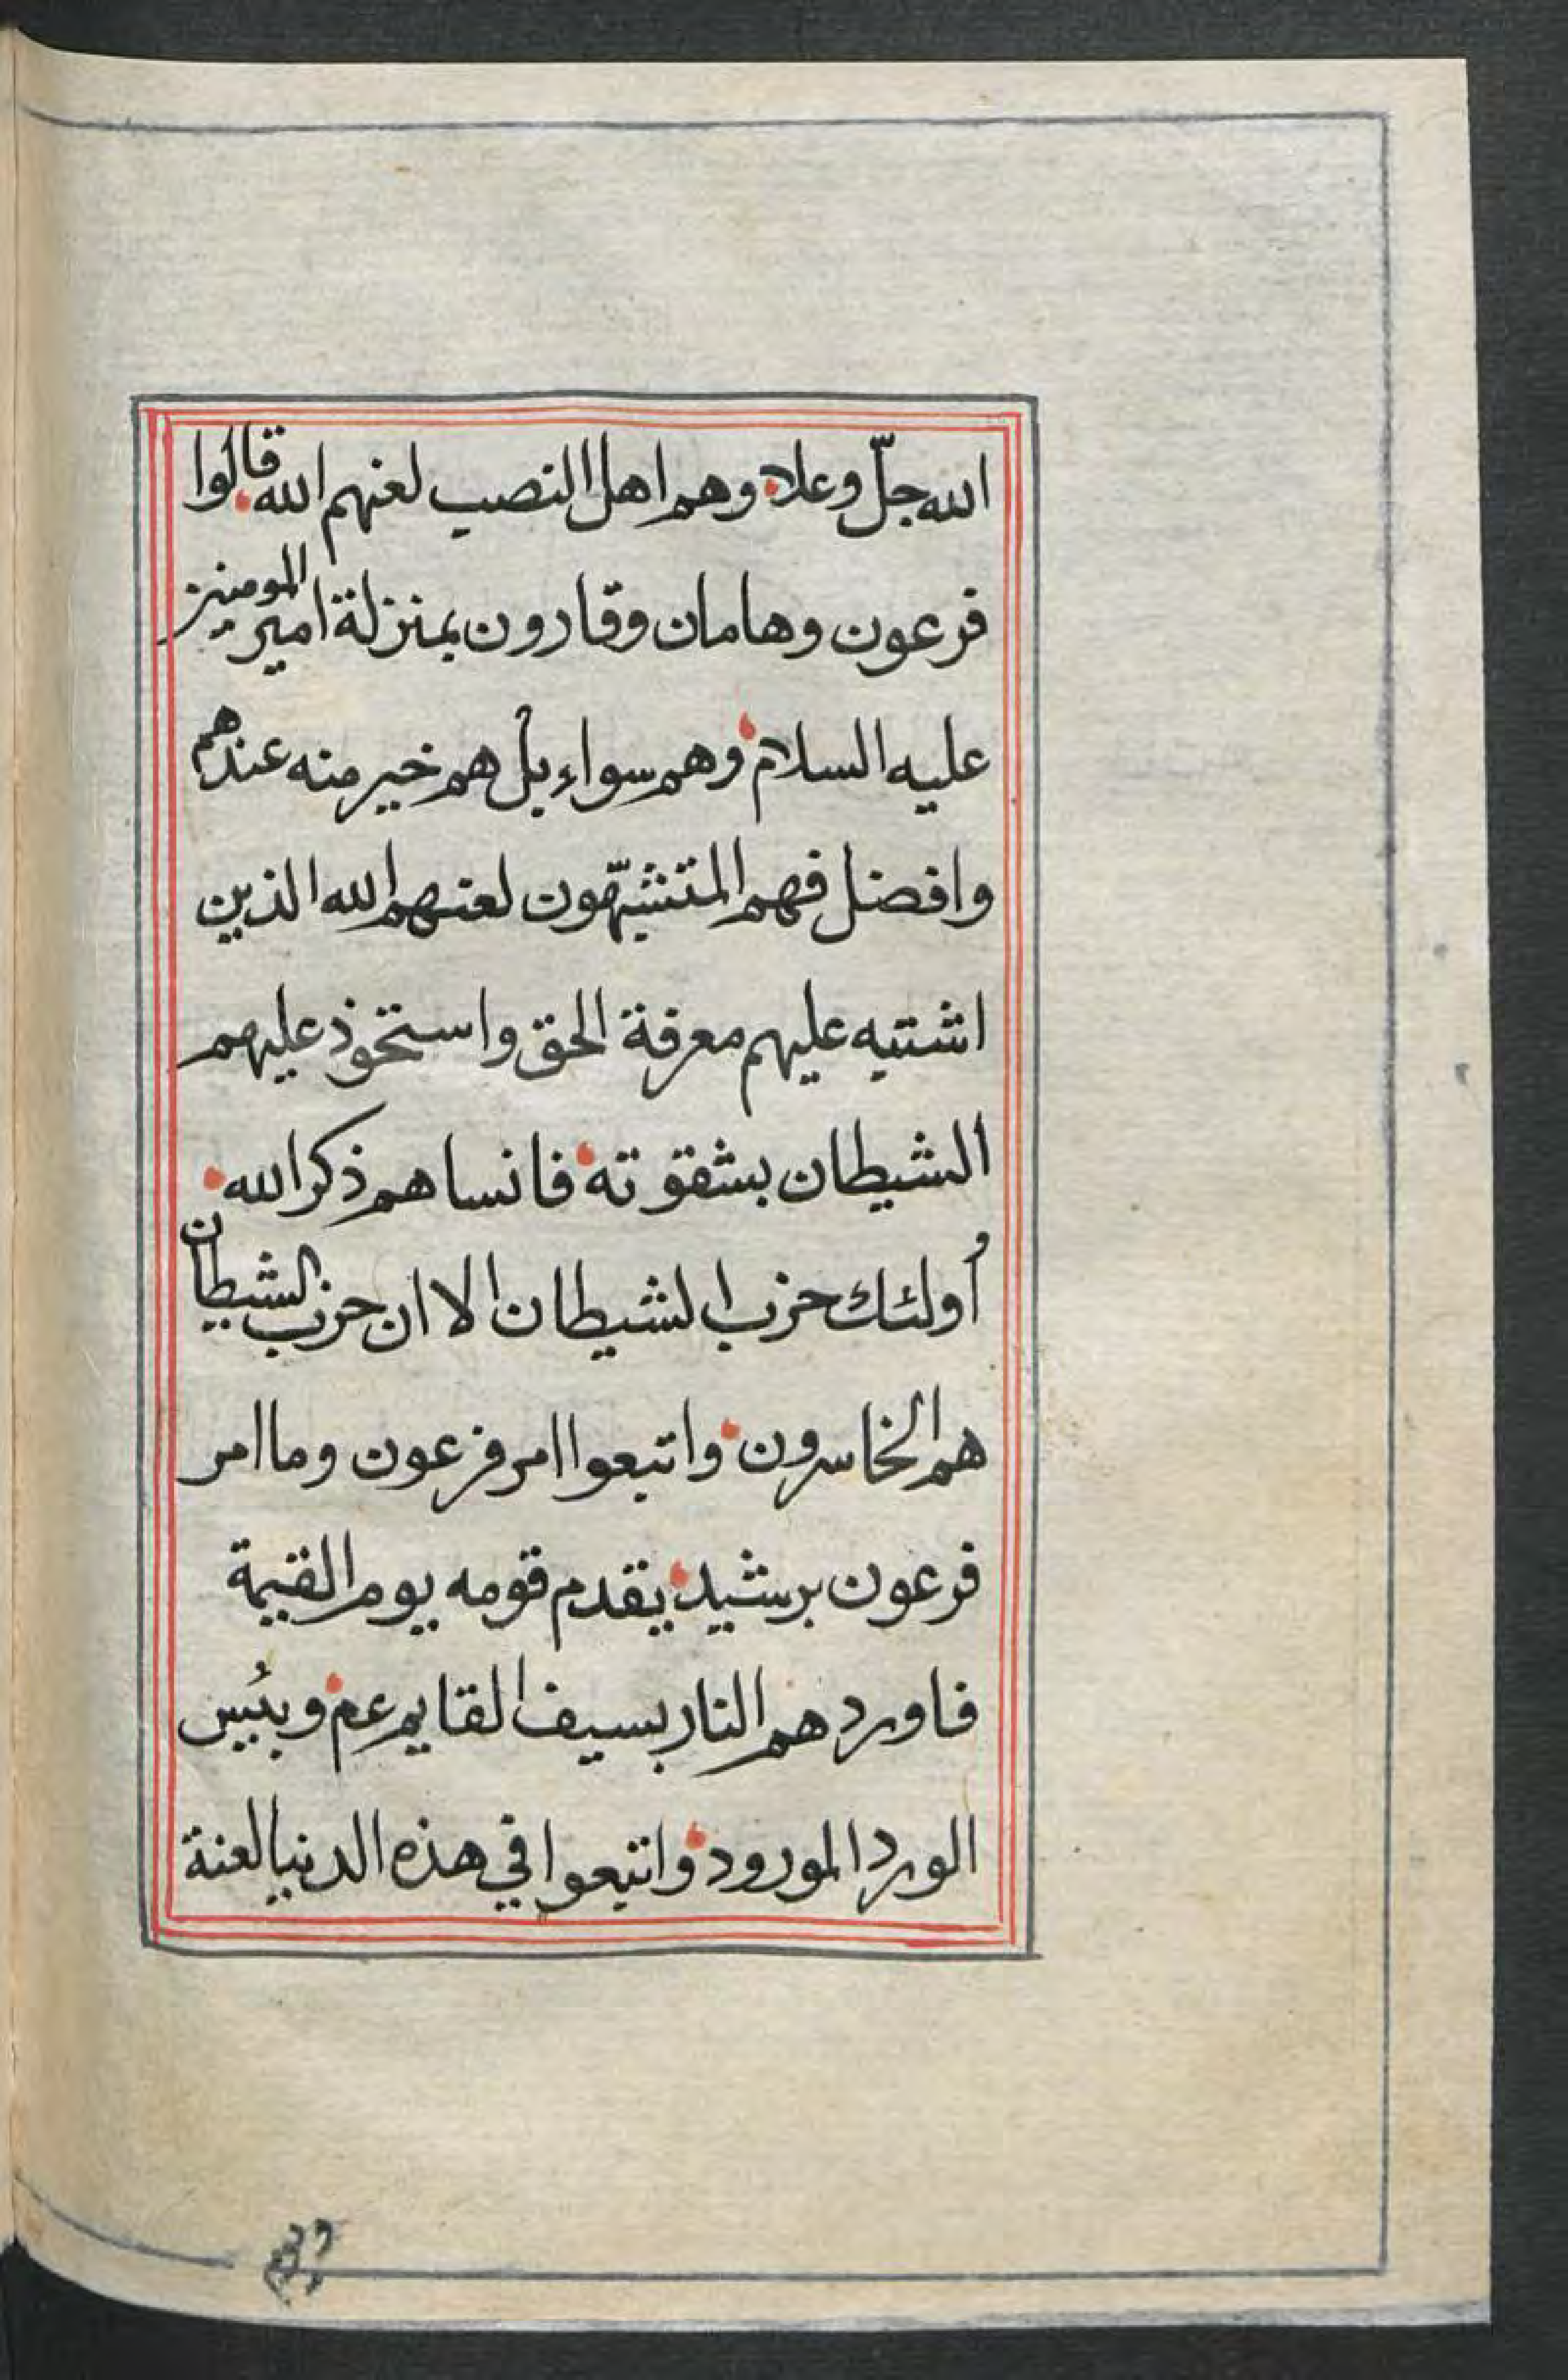 الله جلّ وعلا وهم اهل النصب لعنهم الله قالوا
فرعون وهامان وقارون بمنزلة امير المومنين
عليه السلام وهم سواء بل هم خير منه عندهم
وافضل فهم المتشبّهون لعنهم الله الذين
اشتبه عليهم معرفة الحق واستحوذ عليهم
الشيطان بشقوته فانساهم ذكر الله
أولئك حزب الشيطان الا ان حزب الشيطان
هم الخاسرون واتبعوا امر فرعون وما امر
فرعون برشيد يقدم قومه يوم القيمة
فاوردهم النار بسيف القايم عم وبئيس
الورد المورود واتبعوا في هذه الدنيا لعنة